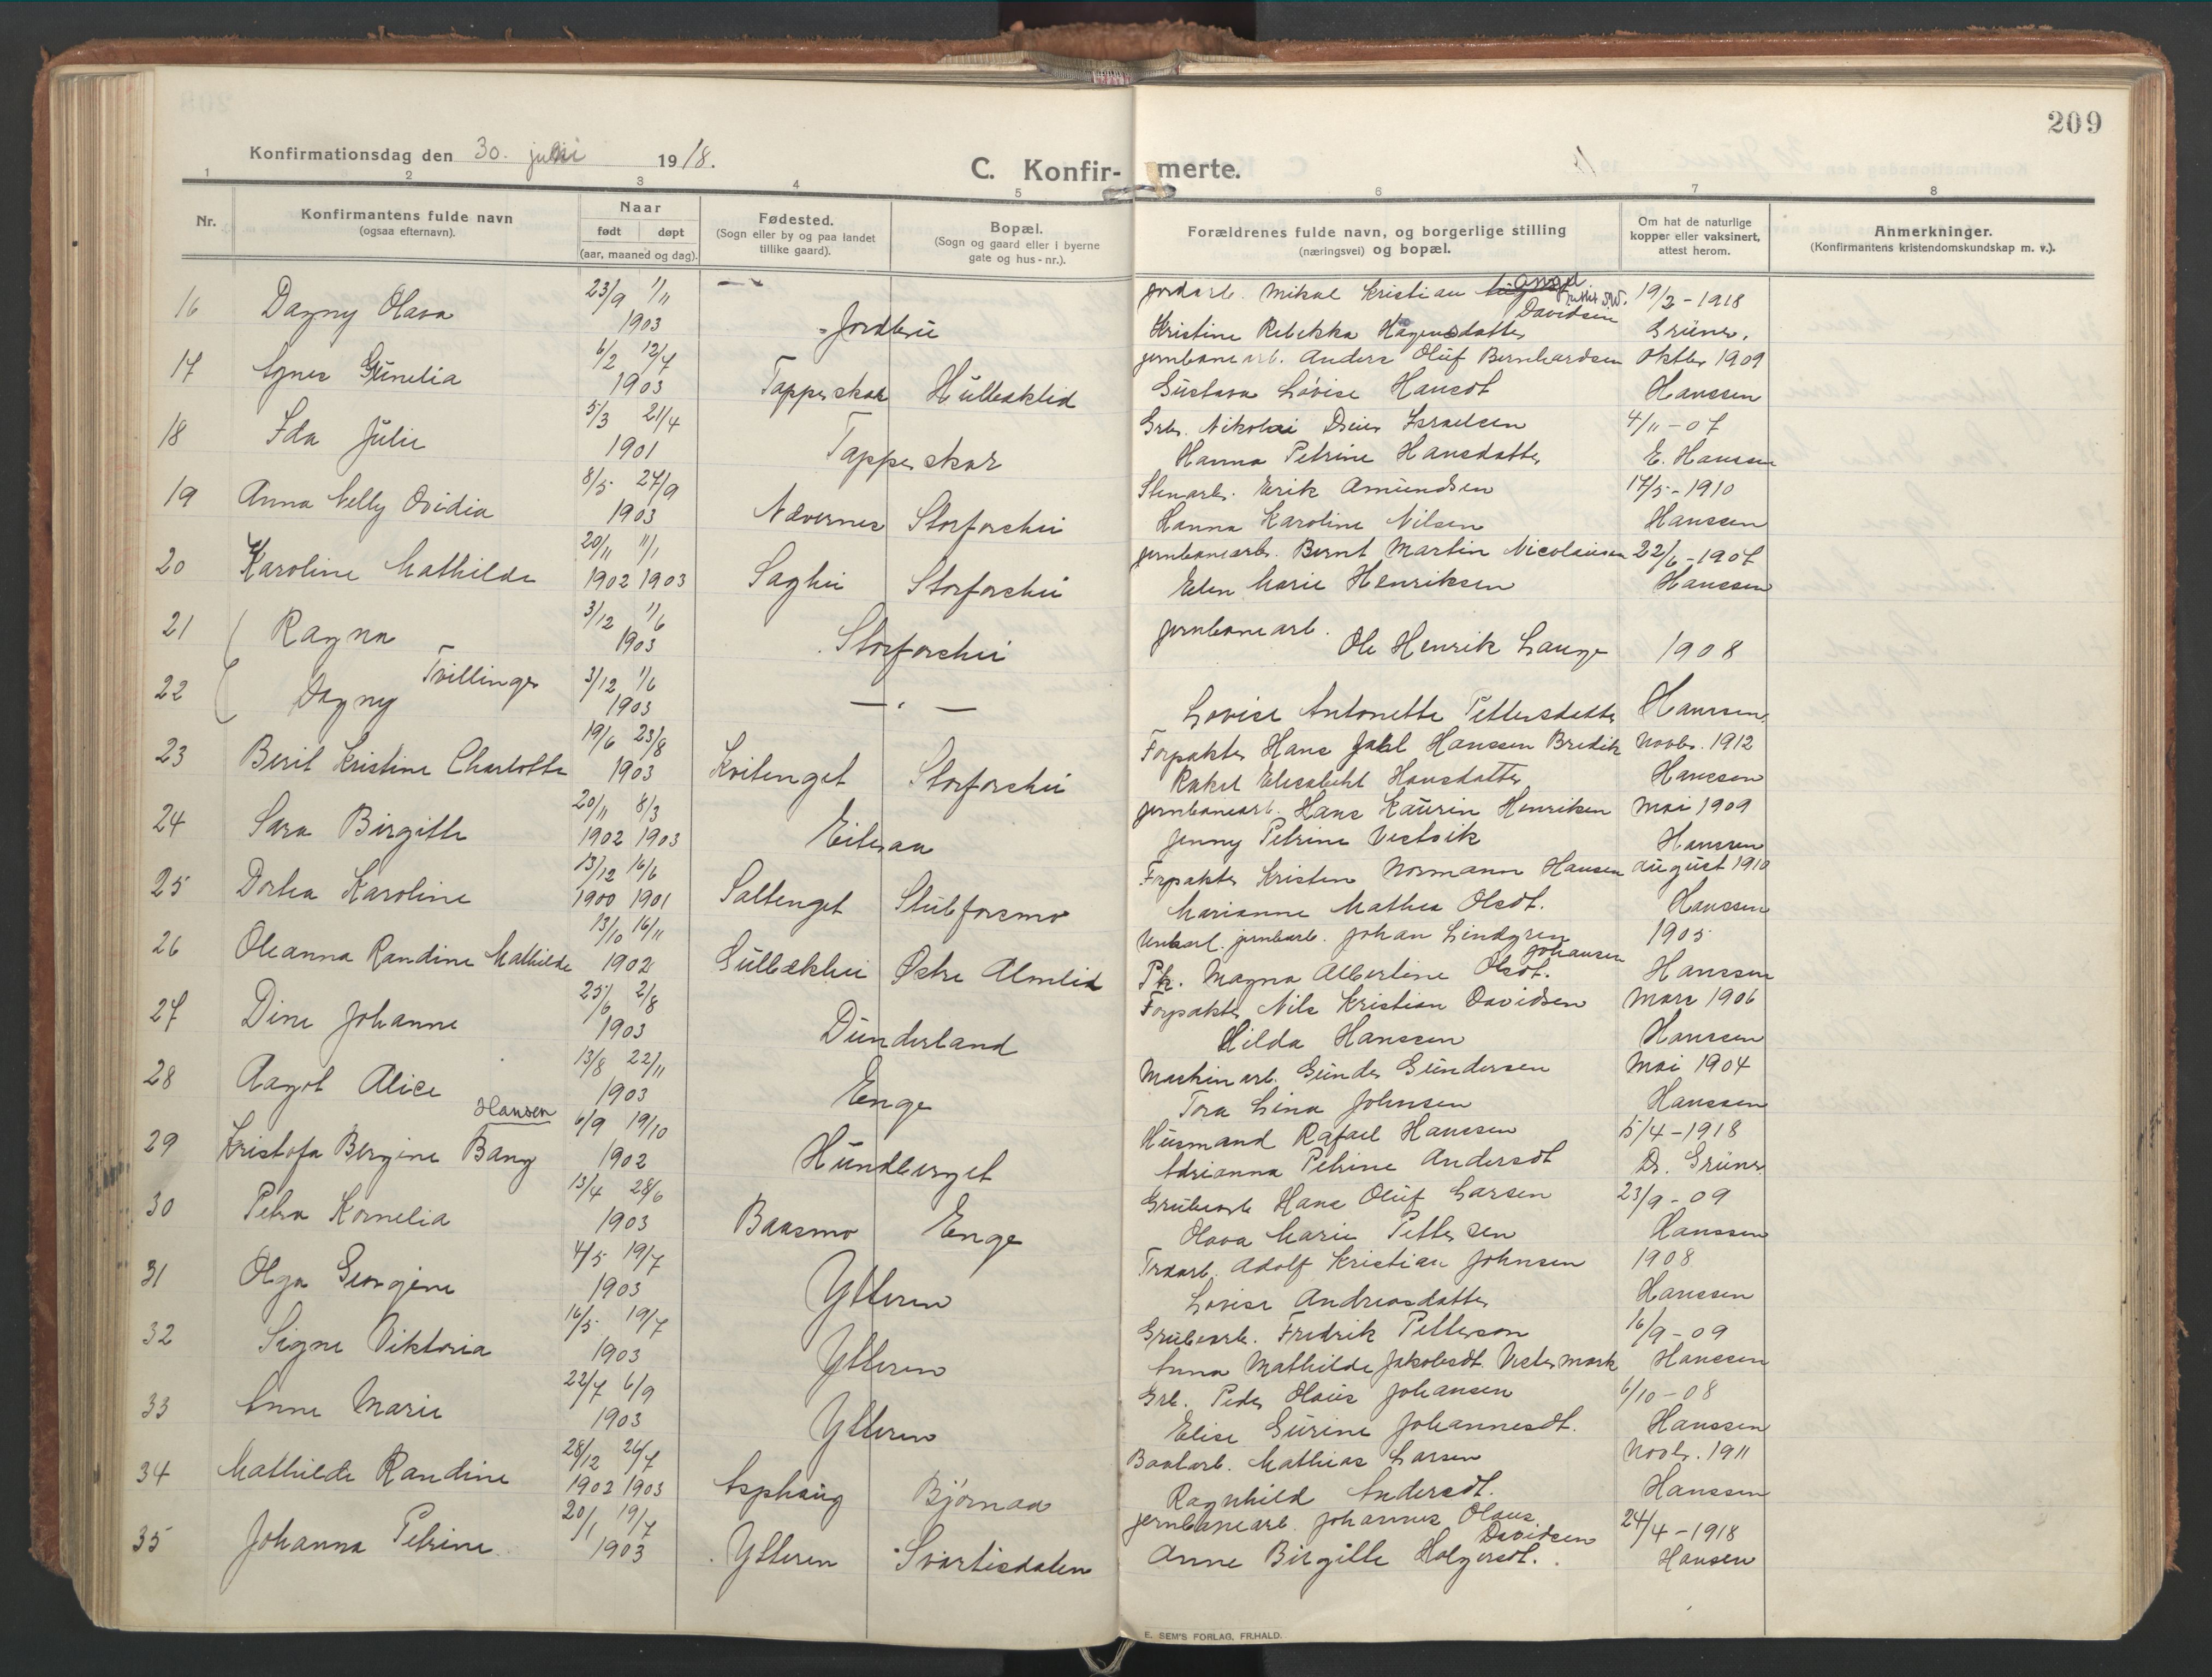 209
Konfirmationsdag den 30. juni 1918.
C. Konfir- merte.
1 2 3 4 5 6 7 8
Nr.
Konfirmantens fulde navn
(ogsaa efternavn).
Naar
født døpt
(aar, maaned og dag).
Fødested.
(Sogn eller by og paa landet
tillike gaard).
Bopæl.
(Sogn og gaard eller i byerne
gate og hus-nr.).
Forældrenes fulde navn, og borgerlige stilling
(næringsvei) og bopæl.
Om hat de naturlige
kopper eller vaksinert,
attest herom.
Anmerkninger.
(Konfirmantens kristendomskundskap m. v.).
16 Dagny Olava 23/9 1/11 1903 Jordbru
Jordarb. Mikal Kristian Davidsen 19/2-1918
Kristine Rebekka Hagensdatter Grüner.
17 Agnes Gunelia 6/2 12/7 1903 Tappeskar Hullbaklid
jernbanearb. Anders Oluf Bernhardsen oktbr 1909
Gustava Lovise Hansdt Hanssen
18 Ida Julie 5/3 21/4 1901 Tappeskar
Grb. Nikolai Dreier Israelsen 4/11-07
Hanna Petrine Hansdatter E. Hanssen
19 Anna Nelly Ovidia 8/5 27/9 1903 Nævernes Storforshei
Stenarb. Erik Amundsen 17/5-1910
Hanna Karoline Nilsen Hanssen
20 Karoline Mathilde 20/11 11/1 1902 1903 Saghei Storforshei
jernbanearb. Bernt Martin Nicolaisen 22/6-1907
Elen Marie Henriksen Hanssen
21 Ragna 3/12 1/6 1903 Storforshei
jernbanearb. Ole Henrik Lange 1908
Tvillinger
22 Dagny 3/12 1/6 1903 —.—
Lovise Antonette Pettersdatter Hanssen
23 Berit Kristine Charlotte 19/6 23/8 1903 Kvitenget Storforshei
Forpakter Hans Jakl Hanssen Bredik Novbr. 1912
Rakel Elesabeht Hansdatter Hanssen
24 Sara Birgitte 20/11 8/3 1902 1903 Eiteraa
jernbanearb. Hans Kaurin Henriksen Mai 1909
Jenny Petrine Vestvik Hanssen
25 Dortea Karoline 13/12 16/6 1900 1901 Saltenget Stubforsmo
Forpakter Kristen Normann Hansen august 1910
Marianne Mathea Olsdt. Hanssen
26 Oleanna Randine Mathilde 13/10 16/11 1902 Gulbækhei Østre Almlid
jernbarb. Johan Lindgren Johansen 1905
Pk. Magna Albertine Olsdt. Hanssen
27 Dine Johanne 25/6 2/8 1903 Dunderland
Forpakter Nils Kristian Davidsen Mars 1906
Hilda Hanssen Hanssen
28 Aagot Alice 13/8 22/11 1903 Enge
Maskinarb. Gunder Gundersen Mai 1904
Tora Lina Johnsen Hanssen
29 Kristofa Bergine Bang Hansen 6/9 19/10 1902 Hundberget
Husmand Rafael Hanssen 15/4-1918
Adrianna Petrine Andersdt Dr. Grüner
30 Petra Kornelia 13/4 28/6 1903 Baasmo Enge
Grubearb Hans Oluf Larsen 23/9-09
Olava Marie Pettersen Hanssen
31 Olga Georgine 4/5 19/7 1903 Ytteren
Træarb. Adolf Kristian Johnsen 1908
Lovise Andreasdatter Hanssen
32 Signe Viktoria 16/5 19/7 1903 Ytteren
Grubearb. Fredrik Petterson 16/9-09
Anna Mathilde Jakobsdt. Vestermark Hanssen
33 Anne Marie 22/7 6/9 1903 Ytteren
Grb. Peder Olaus Johansen 6/10-08
Elise Gurine Johannesdt. Hanssen
34 Mathilde Randine 28/12 26/7 1902 1903 Asphaug Bjørnaa
Baatarb. Mathias Larsen Novbr. 1911
Ragnhild Andersdt. Hanssen
35 Johanna Petrine 20/1 19/7 1903 Ytteren Svartisdalen
jernbanearb. Johannes Olaus Davidsen 24/4-1918
Anne Birgitte Holgersdt. Hansen
E. SEM'S FORLAG, FR.HALD.